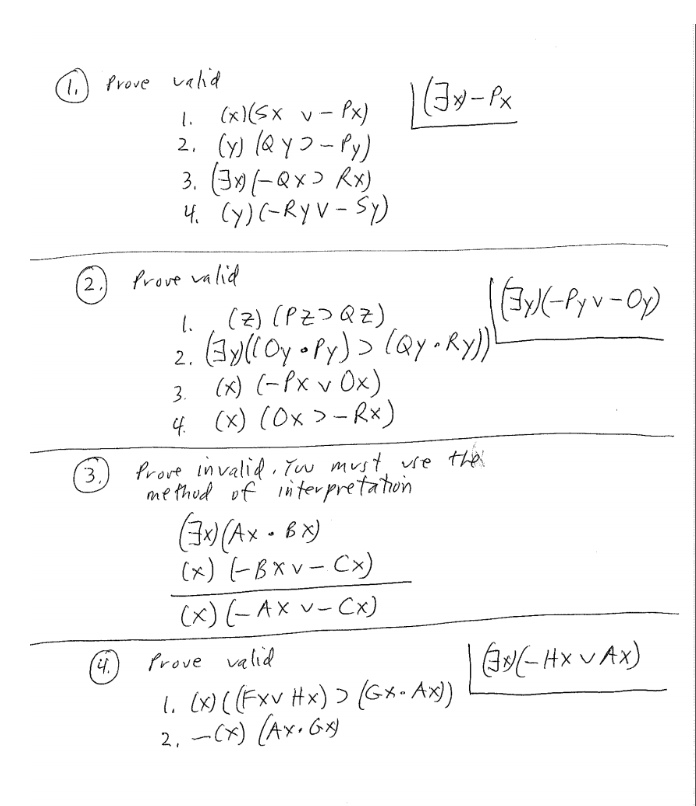 1. Prove valid
1. (x)(Sx v - Px) (∃x) - Px
2. (y) (Qy ⊃ - Py)
3. (∃x) (-Qx ⊃ Rx)
4. (y) (-Ry v - Sy)
2. Prove valid
1. (z) (Pz ⊃ Qz) (∃y)(-Py v - Oy)
2. (∃y)((Oy • Py) ⊃ (Qy • Ry))
3. (x) (-Px v Ox)
4. (x) (Ox ⊃ - Rx)
3. Prove invalid. You must use the
method of interpretation
(∃x)(Ax • Bx)
(x) (-Bx v - Cx)
(x) (- Ax v - Cx)
4. Prove valid (∃x)(- Hx v Ax)
1. (x) ((Fx v Hx) ⊃ (Gx • Ax))
2. -(x) (Ax • Gx)